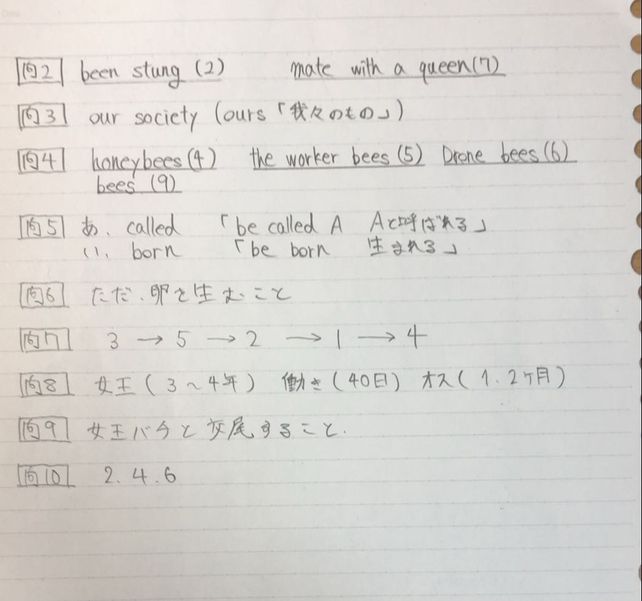 問2 been stung (2) mate with a queen(7)
問3 our society (ours「我々のもの」)
問4 honeybees(4) the worker bees(5) Drone bees(6)
bees (9)
問5 あ、called 「be called A Aと呼ばれる」
い、born 「be born 生まれる」
問6 ただ、卵を生むこと
問7 3 → 5 → 2 → 1 → 4
問8 女王(3〜4年) 働き(40日) オス(1.2ヶ月)
問9 女王バチと交尾すること.
問10 2.4.6